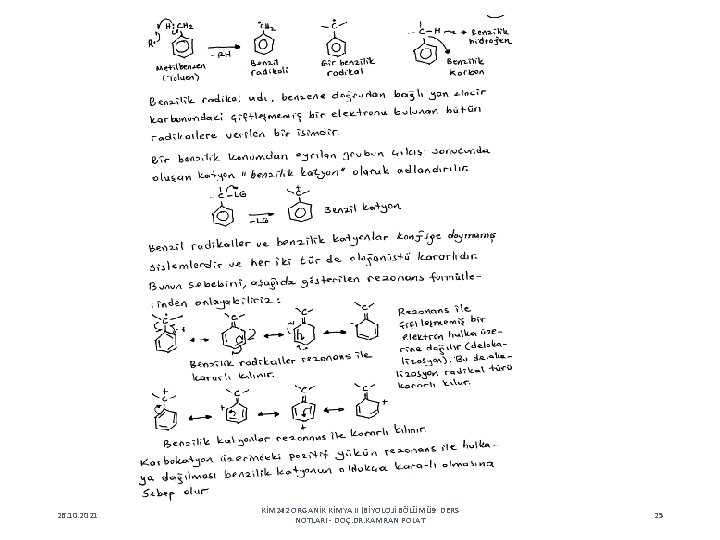 H:CH₂
ĊH₂
-Ċ-
-C-H → Benzilik hidrojen
R·
-RH
Metilbenzen
(Toluen)
Benzil
radikali
Bir benzilik
radikal
Benzilik
karbon
Benzilik radikal adı, benzene doğrudan bağlı yan zincir
karbonundaki çiftleşmemiş bir elektronu bulunan bütün
radikallere verilen bir isimdir.
Bir benzilik konumdan ayrılan grubun çıkışı sonucunda
oluşan katyon "benzilik katyon" olarak adlandırılır.
-C-LG
-LG
-C-
+
Benzil katyon
Benzil radikaller ve benzilik katyonlar konjuge doymamış
sistemlerdir ve her iki tür de olağanüstü kararlıdır.
Bunun sebebini, aşağıda gösterilen rezonans formülle-
rinden anlayabiliriz:
Rezonans ile
çiftleşmemiş bir
elektron halka üze-
rine dağılır (deloka-
lizasyon). Bu deloka-
lizasyon radikal türü
kararlı kılar.
Benzilik radikaller rezonans ile
kararlı kılınır.
Benzilik katyonlar rezonans ile kararlı kılınır.
Karbokatyon üzerindeki pozitif yükün rezonans ile halka-
ya dağılması benzilik katyonun oldukça kararlı olmasına
sebep olur
26.10.2021
KİM242 ORGANİK KİMYA II (BİYOLOJİ BÖLÜMÜ)- DERS
NOTLARI - DOÇ.DR.KAMRAN POLAT
25